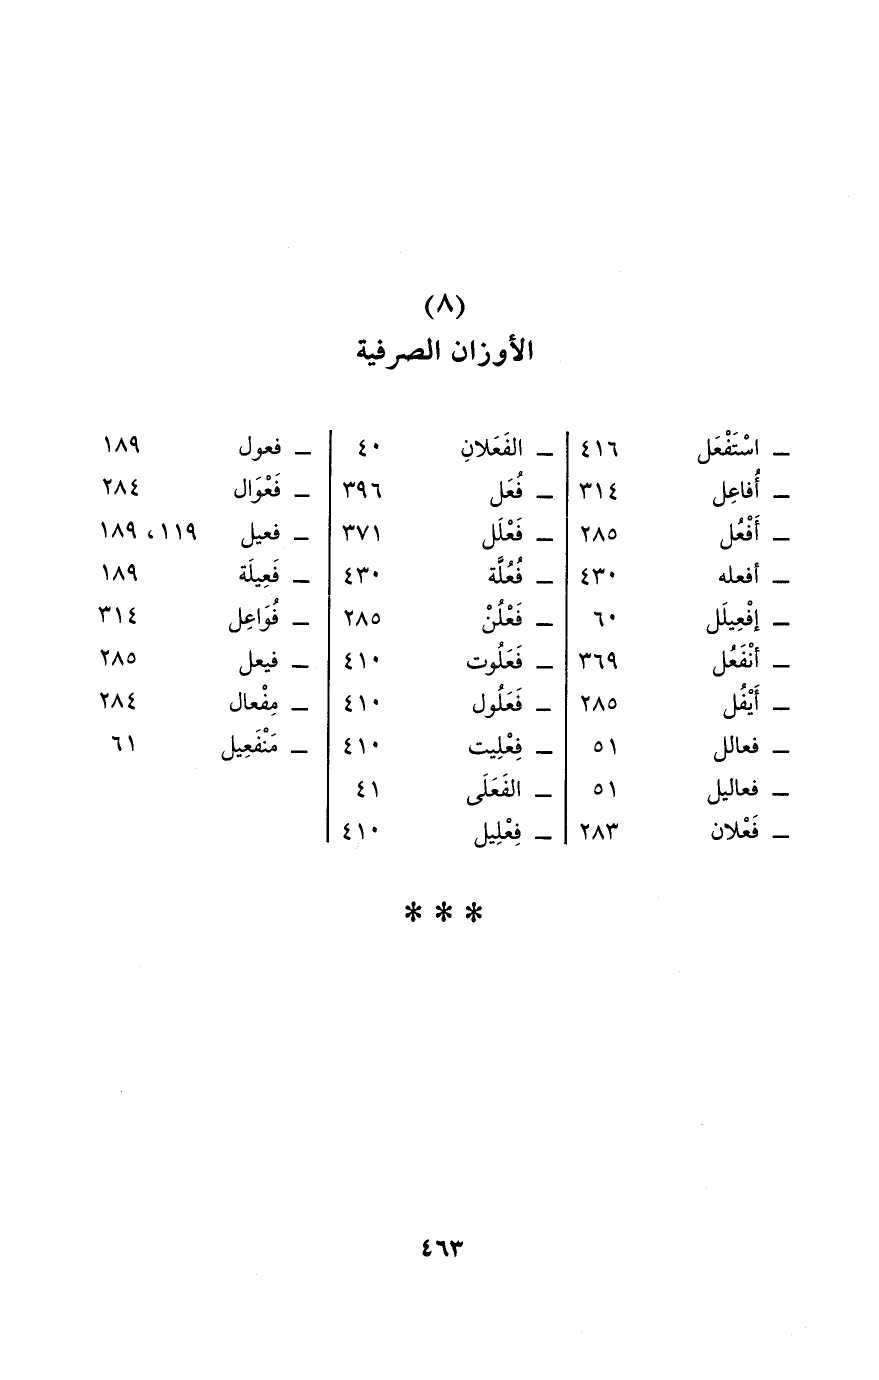 (٨)
الأوزان الصرفية
ــ اسْتَفْعَل ٤١٦
ــ أُفاعِل ٣١٤
ــ أَفْعُل ٢٨٥
ــ أفعله ٤٣٠
ــ إفْعِيلَل ٦٠
ــ أنْفَعُل ٣٦٩
ــ أَيْفُل ٢٨٥
ــ فعالل ٥١
ــ فعاليل ٥١
ــ فَعْلان ٢٨٣
ــ الفَعَلانِ ٤٠
ــ فُعَل ٣٩٦
ــ فَعْلَل ٣٧١
ــ فُعُلَّة ٤٣٠
ــ فَعْلُنْ ٢٨٥
ــ فَعَلُوت ٤١٠
ــ فَعَلُول ٤١٠
ــ فِعْلِيت ٤١٠
ــ الفَعَلَى ٤١
ــ فِعْلِيل ٤١٠
ــ فعول ١٨٩
ــ فَعْوَال ٢٨٤
ــ فعيل ١١٩، ١٨٩
ــ فَعِيلَة ١٨٩
ــ فُوَاعِل ٣١٤
ــ فيعل ٢٨٥
ــ مِفْعال ٢٨٤
ــ مَنْفَعِيل ٦١
***
٤٦٣